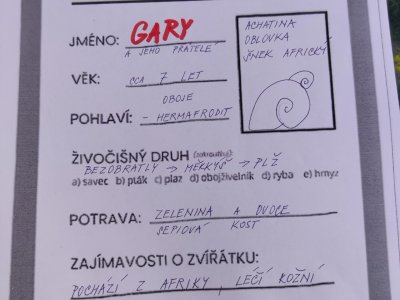 JMÉNO: GARY
A JEHO PŘÁTELÉ
ACHATINA
OBLOVKA
ŠNEK AFRICKÝ
VĚK: CCA 7 LET
OBOJE
POHLAVÍ: - HERMAFRODIT
ŽIVOČIŠNÝ DRUH (zakroužkuj):
BEZOBRATLÝ → MĚKKÝŠ → PLŽ
a) savec b) pták c) plaz d) obojživelník d) ryba e) hmyz
POTRAVA: ZELENINA A OVOCE
SEPIOVÁ KOST
ZAJÍMAVOSTI O ZVÍŘÁTKU:
POCHÁZÍ Z AFRIKY, LÉČÍ KOŽNÍ